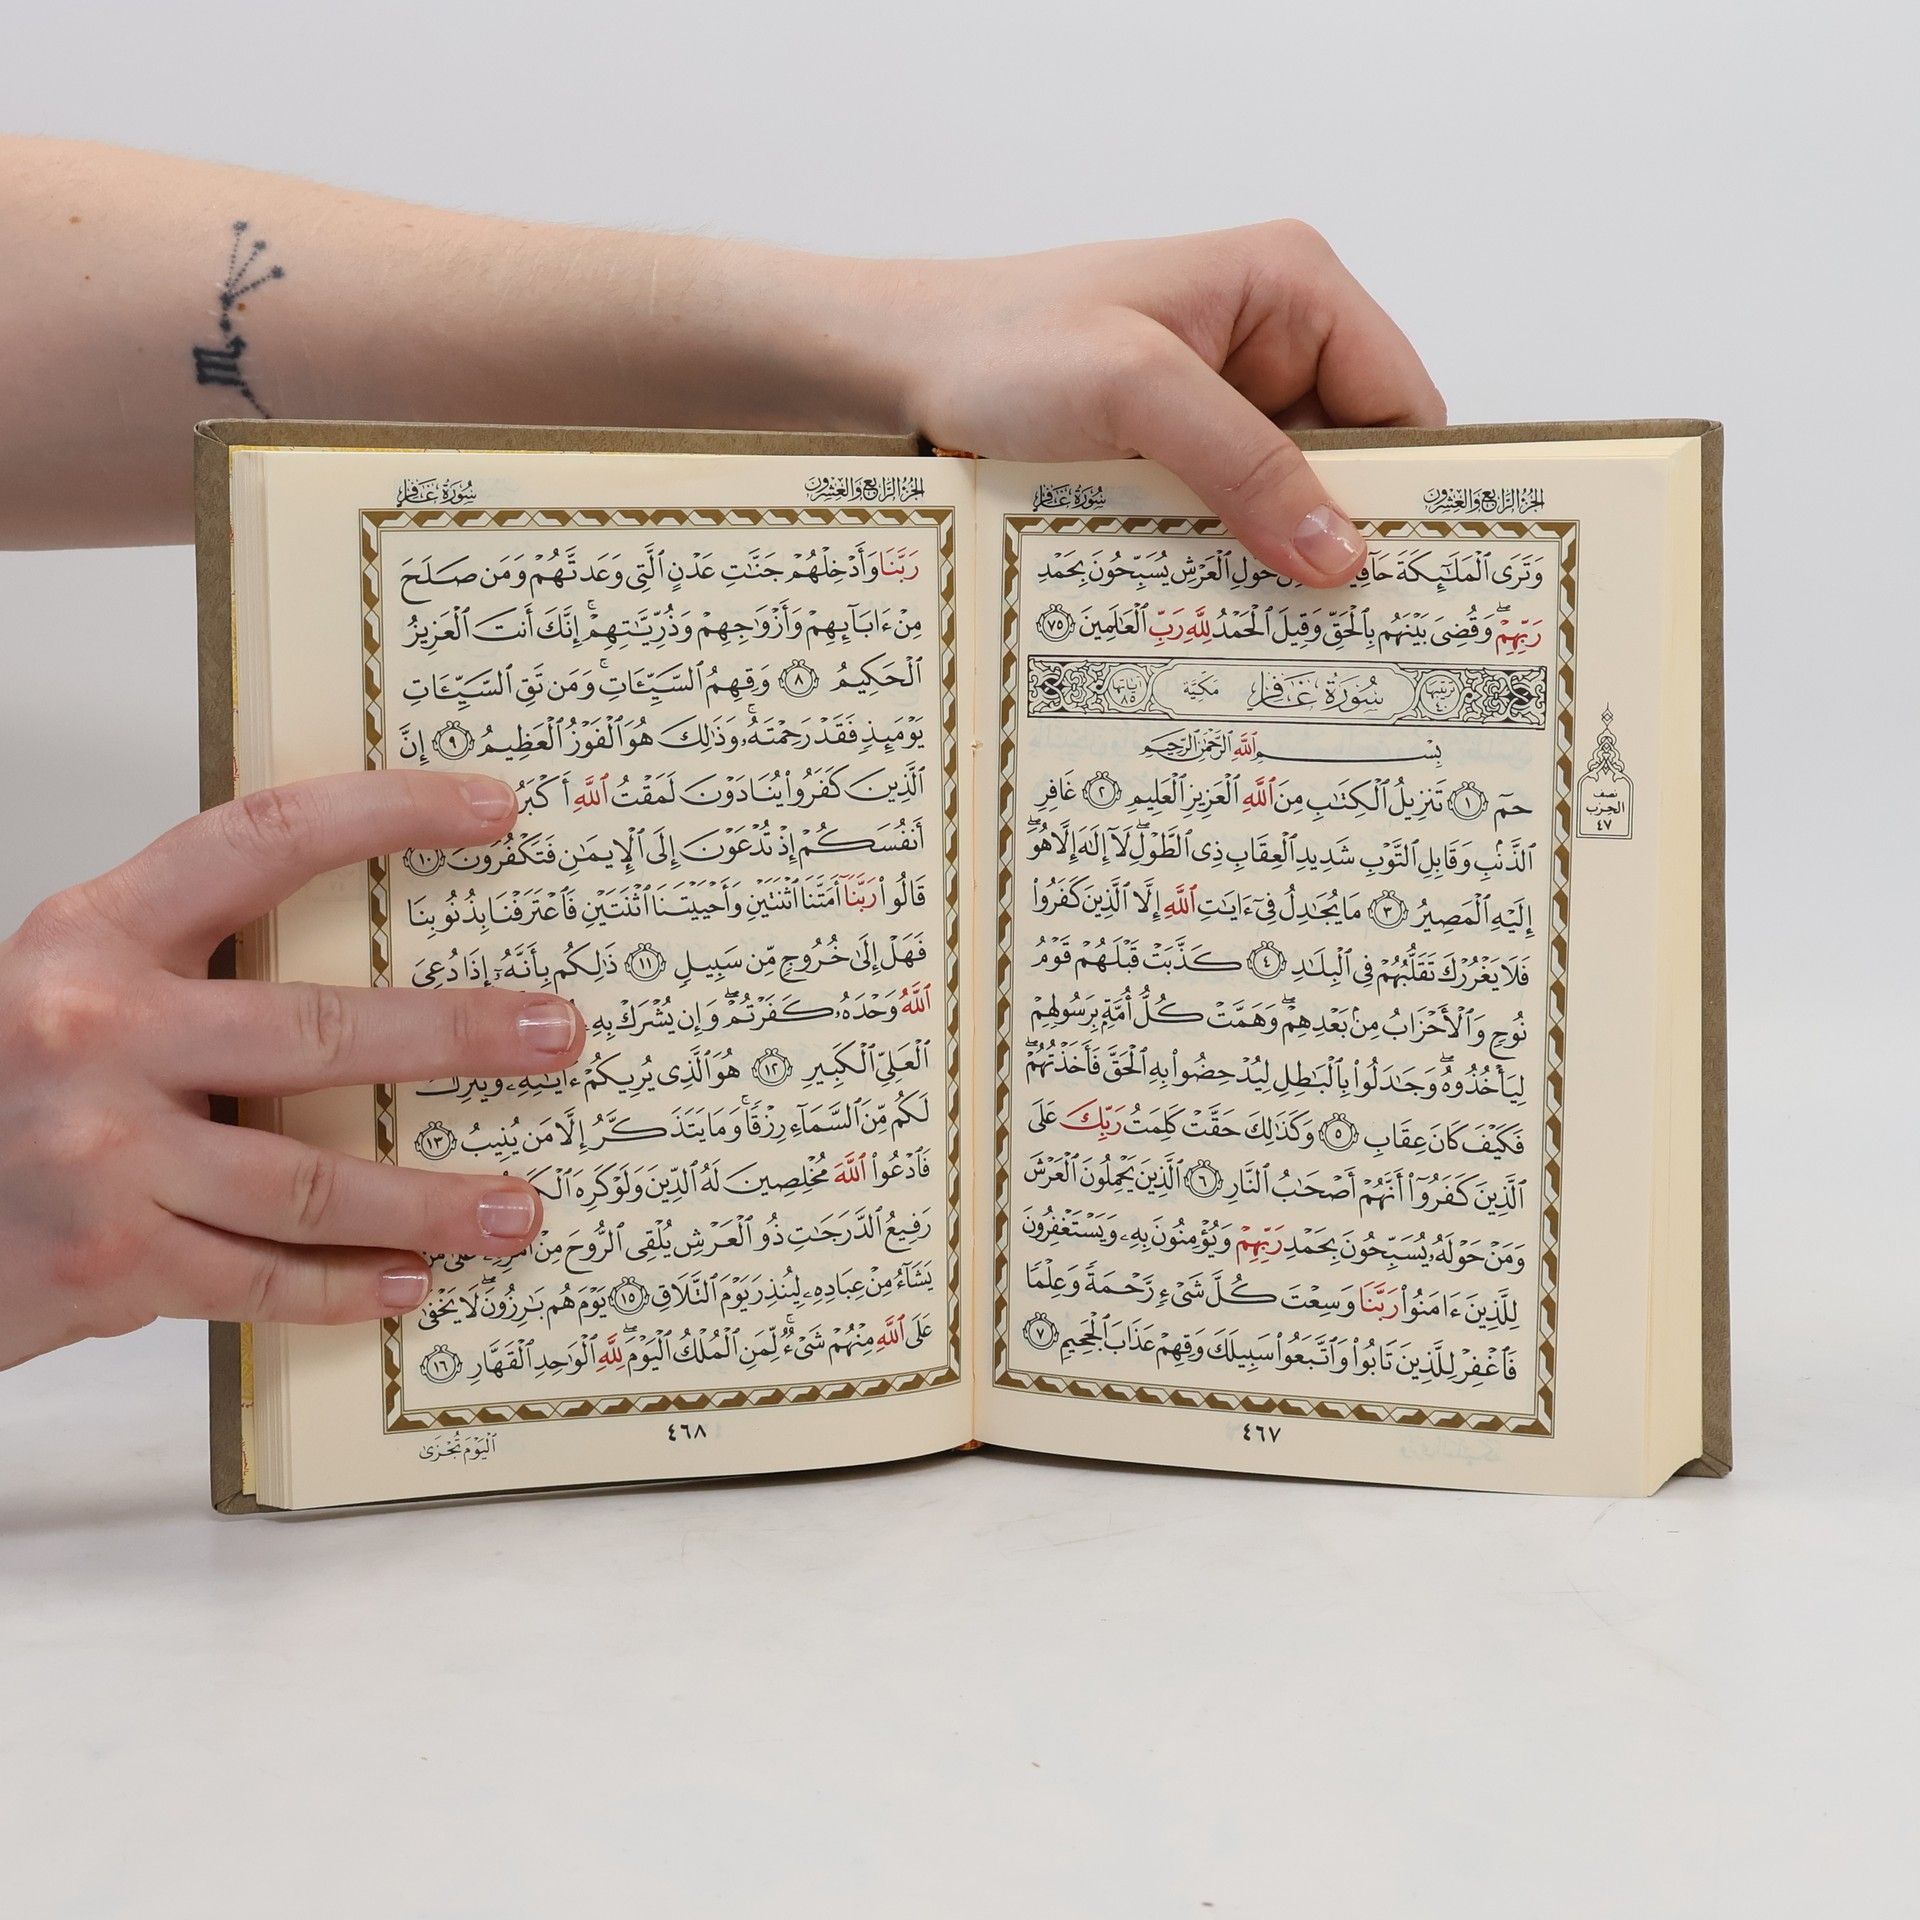 الجزء الرابع والعشرون
سورة غافر
وَتَرَى ٱلْمَلَـٰٓئِكَةَ حَوْلِ ٱلْعَرْشِ يُسَبِّحُونَ بِحَمْدِ
رَبِّهِمْ ۖ وَقُضِىَ بَيْنَهُم بِٱلْحَقِّ وَقِيلَ ٱلْحَمْدُ لِلَّهِ رَبِّ ٱلْعَـٰلَمِينَ ٧٥
ترتيبها ٤٠ سُورَةُ غَافِرٍ مَكِّيَّة آياتها ٨٥
بِسْمِ ٱللَّهِ ٱلرَّحْمَـٰنِ ٱلرَّحِيمِ
حمٓ ١ تَنزِيلُ ٱلْكِتَـٰبِ مِنَ ٱللَّهِ ٱلْعَزِيزِ ٱلْعَلِيمِ ٢ غَافِرِ
ٱلذَّنۢبِ وَقَابِلِ ٱلتَّوْبِ شَدِيدِ ٱلْعِقَابِ ذِى ٱلطَّوْلِ ۖ لَآ إِلَـٰهَ إِلَّا هُوَ ۖ
إِلَيْهِ ٱلْمَصِيرُ ٣ مَا يُجَـٰدِلُ فِىٓ ءَايَـٰتِ ٱللَّهِ إِلَّا ٱلَّذِينَ كَفَرُوا۟
فَلَا يَغْرُرْكَ تَقَلُّبُهُمْ فِى ٱلْبِلَـٰدِ ٤ كَذَّبَتْ قَبْلَهُمْ قَوْمُ
نُوحٍ وَٱلْأَحْزَابُ مِنۢ بَعْدِهِمْ ۖ وَهَمَّتْ كُلُّ أُمَّةٍۭ بِرَسُولِهِمْ
لِيَأْخُذُوهُ ۖ وَجَـٰدَلُوا۟ بِٱلْبَـٰطِلِ لِيُدْحِضُوا۟ بِهِ ٱلْحَقَّ فَأَخَذْتُهُمْ ۖ
فَكَيْفَ كَانَ عِقَابِ ٥ وَكَذَٰلِكَ حَقَّتْ كَلِمَتُ رَبِّكَ عَلَى
ٱلَّذِينَ كَفَرُوٓا۟ أَنَّهُمْ أَصْحَـٰبُ ٱلنَّارِ ٦ ٱلَّذِينَ يَحْمِلُونَ ٱلْعَرْشَ
وَمَنْ حَوْلَهُۥ يُسَبِّحُونَ بِحَمْدِ رَبِّهِمْ وَيُؤْمِنُونَ بِهِۦ وَيَسْتَغْفِرُونَ
لِلَّذِينَ ءَامَنُوا۟ رَبَّنَا وَسِعْتَ كُلَّ شَىْءٍ رَّحْمَةً وَعِلْمًا
فَٱغْفِرْ لِلَّذِينَ تَابُوا۟ وَٱتَّبَعُوا۟ سَبِيلَكَ وَقِهِمْ عَذَابَ ٱلْجَحِيمِ ٧
نصف
الحزب
٤٧
٤٦٧
الجزء الرابع والعشرون
سورة غافر
رَبَّنَا وَأَدْخِلْهُمْ جَنَّـٰتِ عَدْنٍ ٱلَّتِى وَعَدتَّهُمْ وَمَن صَلَحَ
مِنْ ءَابَآئِهِمْ وَأَزْوَٰجِهِمْ وَذُرِّيَّـٰتِهِمْ ۚ إِنَّكَ أَنتَ ٱلْعَزِيزُ
ٱلْحَكِيمُ ٨ وَقِهِمُ ٱلسَّيِّـَٔاتِ ۚ وَمَن تَقِ ٱلسَّيِّـَٔاتِ
يَوْمَئِذٍ فَقَدْ رَحِمْتَهُۥ ۚ وَذَٰلِكَ هُوَ ٱلْفَوْزُ ٱلْعَظِيمُ ٩ إِنَّ
ٱلَّذِينَ كَفَرُوا۟ يُنَادَوْنَ لَمَقْتُ ٱللَّهِ أَكْبَرُ
أَنفُسَكُمْ إِذْ تُدْعَوْنَ إِلَى ٱلْإِيمَـٰنِ فَتَكْفُرُونَ ١٠
قَالُوا۟ رَبَّنَآ أَمَتَّنَا ٱثْنَتَيْنِ وَأَحْيَيْتَنَا ٱثْنَتَيْنِ فَٱعْتَرَفْنَا بِذُنُوبِنَا
فَهَلْ إِلَىٰ خُرُوجٍ مِّن سَبِيلٍ ١١ ذَٰلِكُم بِأَنَّهُۥٓ إِذَا دُعِىَ
ٱللَّهُ وَحْدَهُۥ كَفَرْتُمْ ۖ وَإِن يُشْرَكْ بِهِۦ
ٱلْعَلِىِّ ٱلْكَبِيرِ ١٢ هُوَ ٱلَّذِى يُرِيكُمْ ءَايَـٰتِهِۦ وَيُنَزِّلُ
لَكُم مِّنَ ٱلسَّمَآءِ رِزْقًا ۚ وَمَا يَتَذَكَّرُ إِلَّا مَن يُنِيبُ ١٣
فَٱدْعُوا۟ ٱللَّهَ مُخْلِصِينَ لَهُ ٱلدِّينَ وَلَوْ كَرِهَ
رَفِيعُ ٱلدَّرَجَـٰتِ ذُو ٱلْعَرْشِ يُلْقِى ٱلرُّوحَ مِنْ أَمْرِهِۦ عَلَىٰ مَن
يَشَآءُ مِنْ عِبَادِهِۦ لِيُنذِرَ يَوْمَ ٱلتَّلَاقِ ١٥ يَوْمَ هُم بَـٰرِزُونَ ۖ لَا يَخْفَىٰ
عَلَى ٱللَّهِ مِنْهُمْ شَىْءٌ ۚ لِّمَنِ ٱلْمُلْكُ ٱلْيَوْمَ ۖ لِلَّهِ ٱلْوَٰحِدِ ٱلْقَهَّارِ ١٦
٤٦٨
ٱلْيَوْمَ تُجْزَىٰ